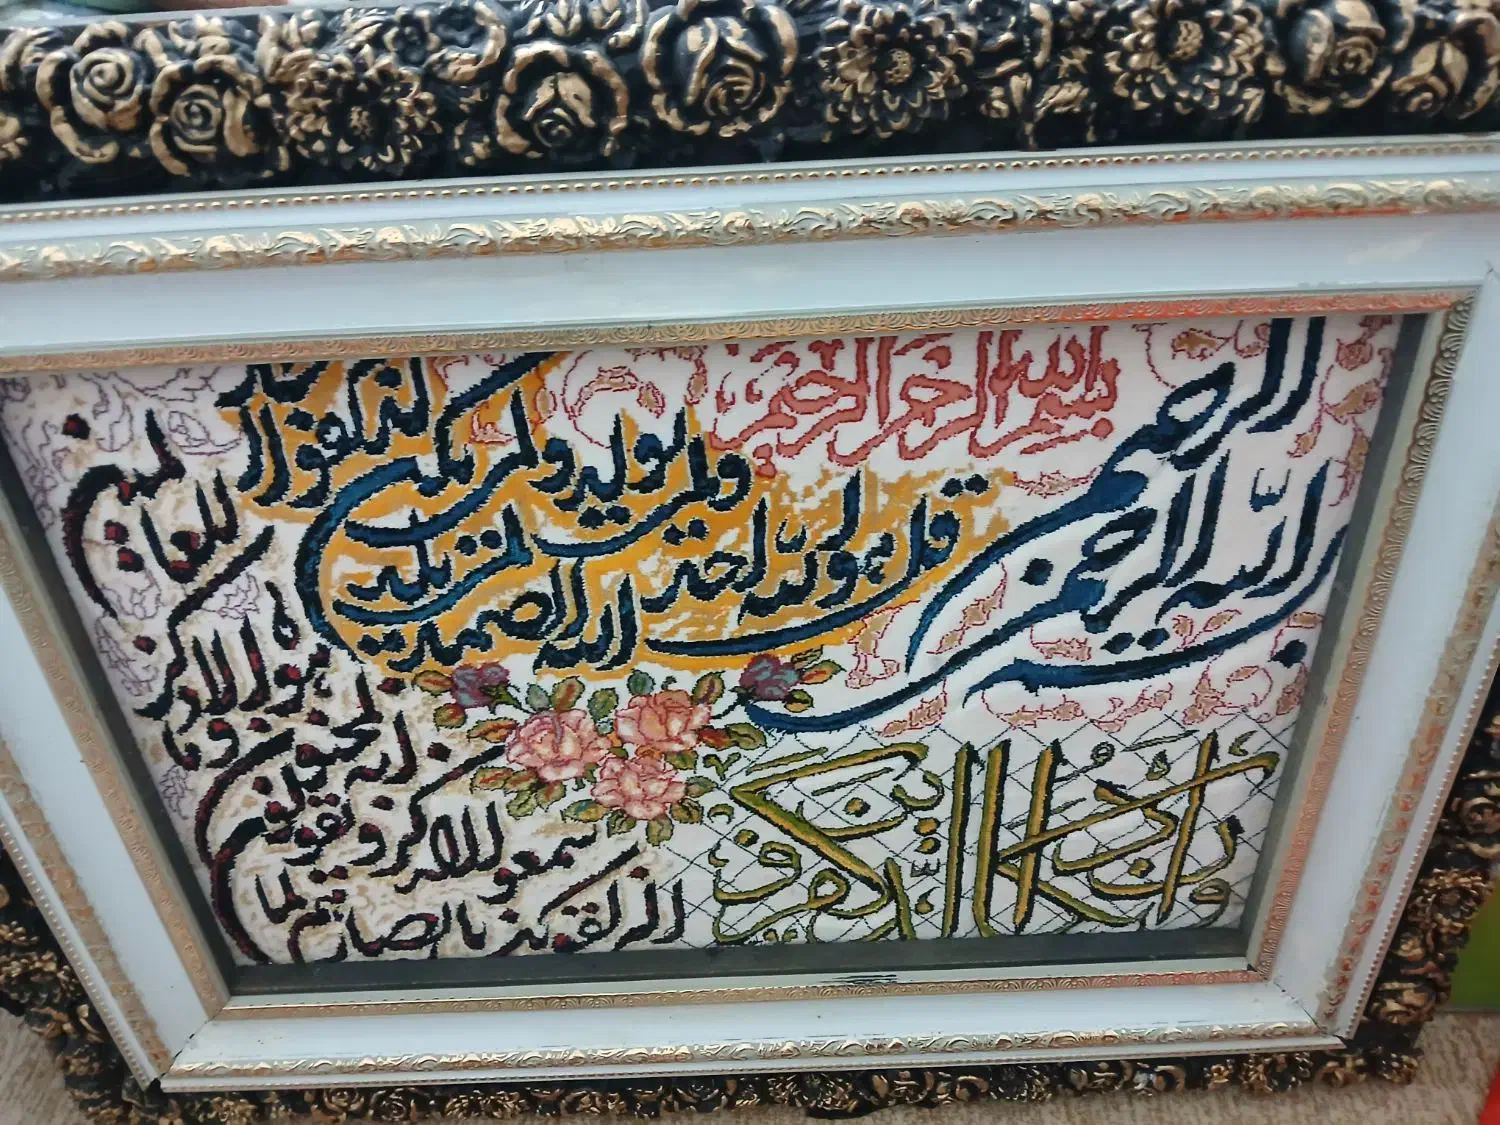 بسم الله الرحمن الرحيم
بسم الله الرحمن الرحيم
قل هو الله احد
الله الصمد
لم يلد
ولم يولد ولم يكن له
كفوا احد
وان يكاد الذين كفروا
ليزلقونك بابصارهم لما
سمعوا الذكر ويقولون
انه لمجنون
وما هو الا ذكر
للعالمين